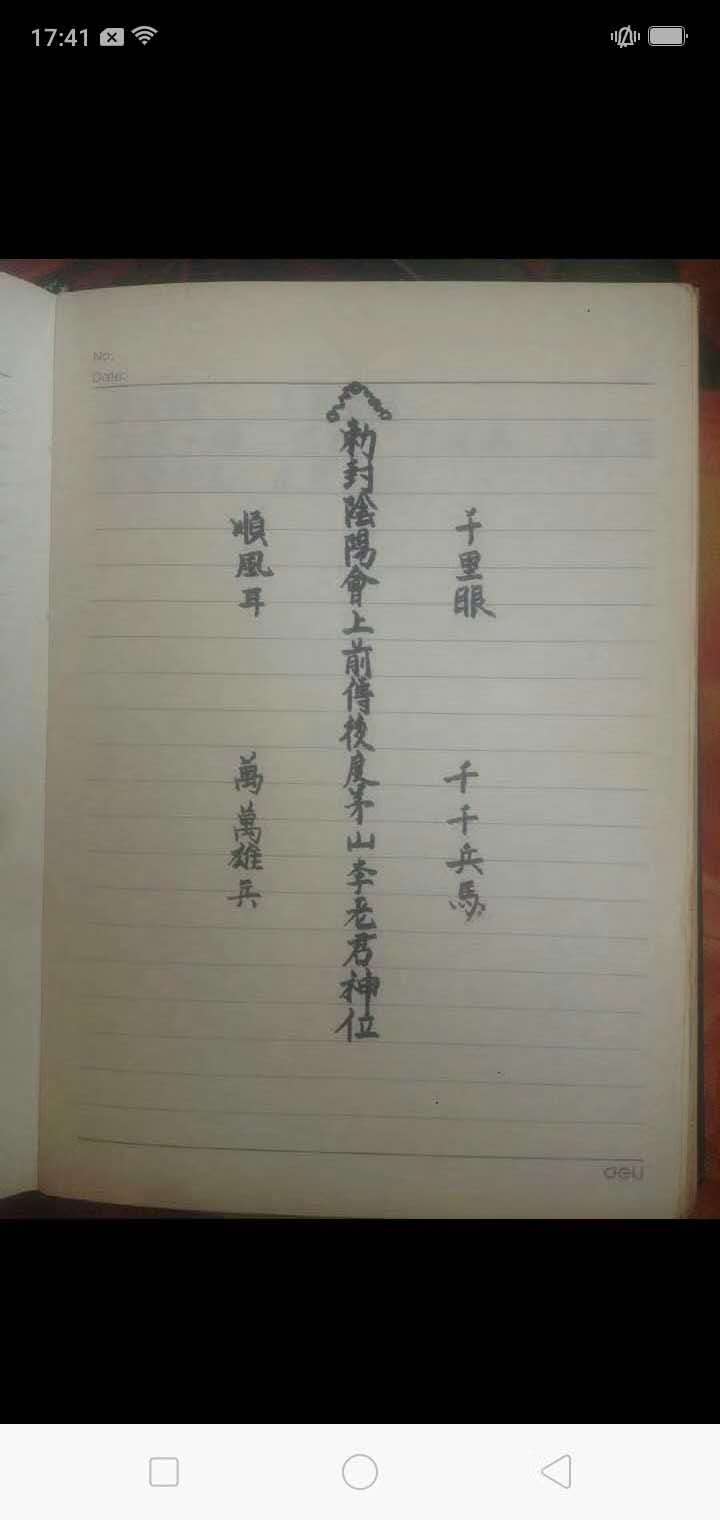 17:41
No:
Date:
千里眼
千千兵馬
勅封陰陽會上前傳後度茅山李老君神位
順風耳
萬萬雄兵
deli